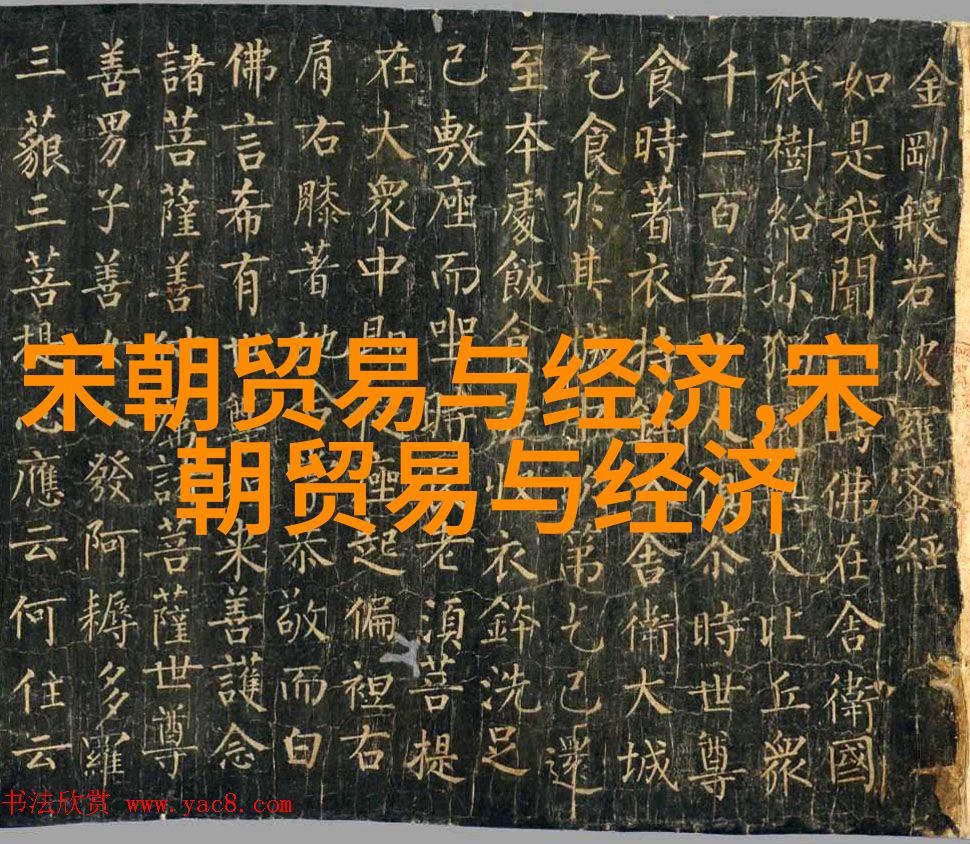 宋朝贸易与经济,宋
朝贸易与经济
金剛般若波羅蜜經
如是我聞佛在舍衛國
祇樹給孤大比丘眾
千二百五尒時世尊
食時著衣持舍衛大城
乞食於其城第乞已還
至本處飯食收衣鉢洗足
已敷座而坐時老須菩提
在大眾中即座起偏袒右
肩右膝著地合恭敬而白
佛言希有世尊来善護念
諸菩薩善諸菩薩世尊
善男子善人發阿耨多羅
三藐三菩提心應云何住云
书法欣赏 www.yac8.com